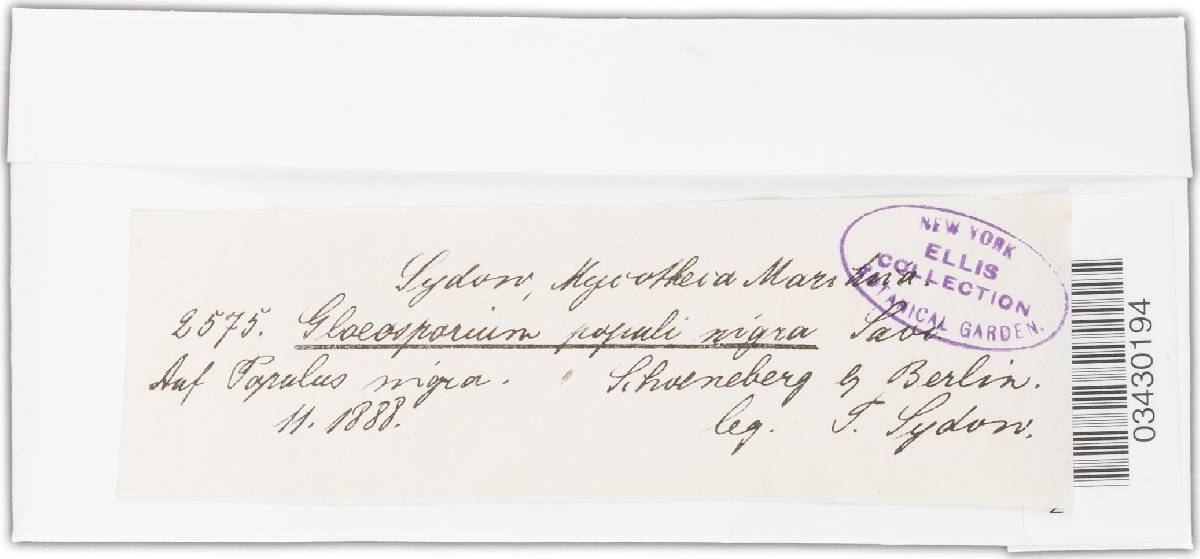 Sydow, Mycotheca Marchica.
2575. Gloeosporium populi nigra Sacc
Auf Populus nigra. Schoeneberg b Berlin.
11. 1888. leg. P. Sydow.
NEW YORK
ELLIS
COLLECTION
BOTANICAL GARDEN.
03430194